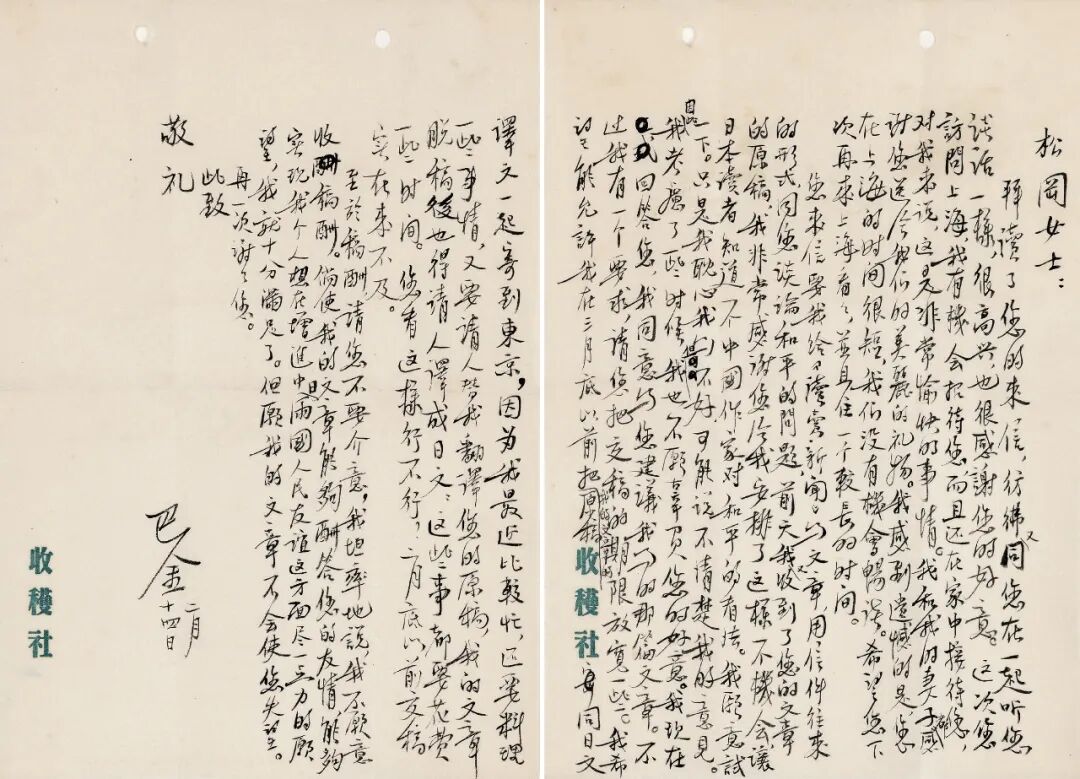 松岡女士：
拜读了您的来信，彷彿又同您在一起听您
谈话一様，很高兴，也很感谢您的好意。这次您
訪問上海，我有機会招待您，而且还在家中接待您，
对我来说，这是非常愉快的事情。我和我的妻子都感
谢您送给我们的美麗的礼物。我感到遺憾的是，您
在上海的时间很短，我们没有機會暢談。希望您下
次再来上海看看，並且住一个較長的时间。
您来信要我给《读卖新闻》写文章，用信件往来
的形式，同您谈论和平的问题，前天我收到了您的文章
的原稿，我非常感谢您给我安排了这様一个機会，讓
日本读者知道一个中國作家对和平的看法。我願意試
一下。只是我耽心我写不好，可能说不清楚我的意見。
我考慮了一些时候，我也不願辜負您的好意。我现在
回答您，我同意写您建議我写的那篇文章。不
过我有一个要求，请您把交稿的期限放寬一些。我希
望能允許我在三月底以前把原稿同日文
收穫社
译文一起寄到東京，因为我最近比較忙，还要料理
一些事情，又要请人替我翻譯您的原稿，我的文章
脱稿後也得請人譯成日文：这些事都要花費
一些时间。您看这様行不行？二月底以前交稿
实在来不及。
至於稿酬，请您不要介意，我坦率地说我不願意
收稿酬。倘使我的文章能夠酬答您的友情，能夠
实现我个人想在增進中日兩國人民友谊这方面尽一点力的願
望，我就十分满足了。但願我的文章不会使您失望。
再一次谢谢您。
此致
敬礼
巴金
二月
十四日
收穫社